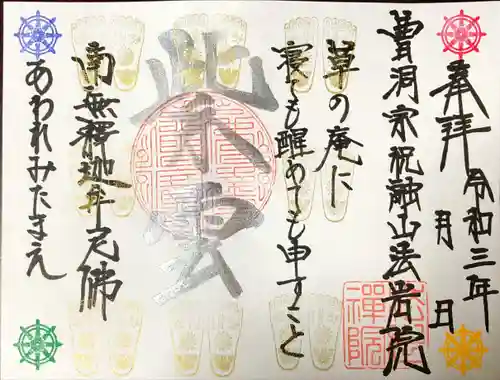 奉拝 令和三年 月 日
曹洞宗祝融山法岩院
草の庵に
寝ても醒めても申すこと
紫雲
南無釋迦牟尼佛
あわれみたまえ